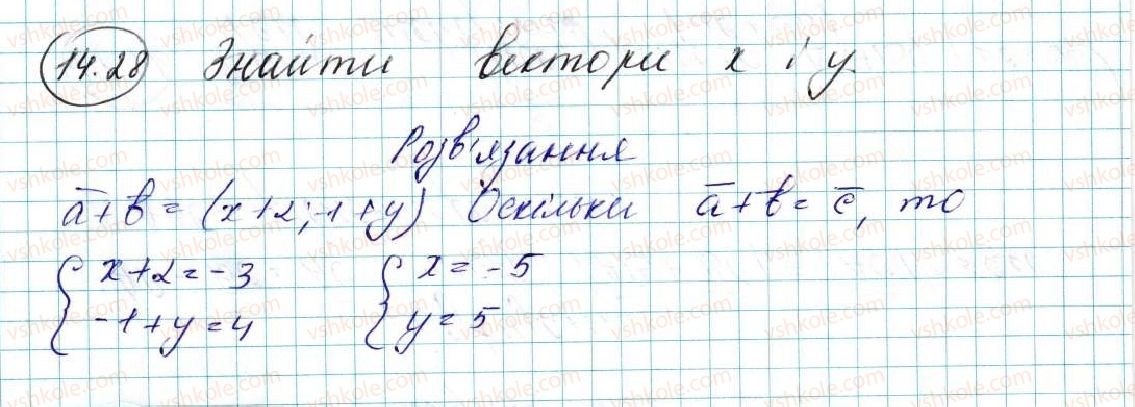 14.28 Знайти вектори x і y.
Розв'язання
a̅+b̅ = (x+2; -1+y) Оскільки a̅+b̅ = c̅, то
{ x+2=-3 { x=-5
{ -1+y=4 { y=5
vshkole.com